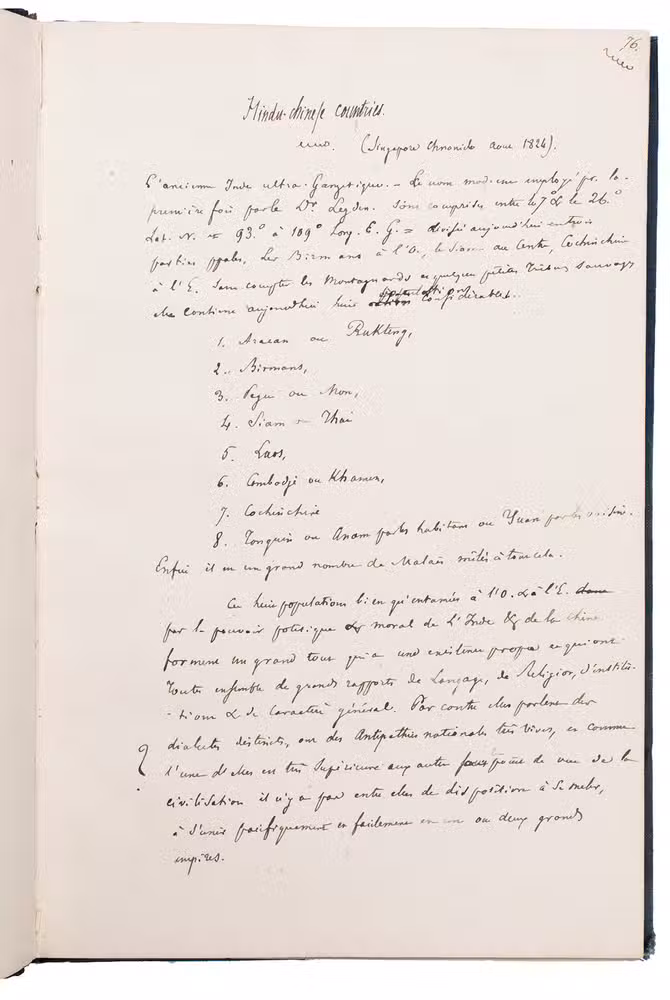 76.
Hindu-chinese countries.
(Singapore Chronicle aout 1824).
L'ancienne Inde ultra-Gangetique. – Le nom moderne employé pr. la
première fois par le Dr. Leyden. Zône comprise entre le 7° & le 26.°
Lat. N. = 93.° à 109° Long. E. G. = divisé aujourd'hui en trois
parties ppales, Les Birmans à l'O., le Siam au Centre, Cochinchine
à l'E. Sans compter les Montagnards et quelques petites Tribus sauvages
elle contient aujourd'hui huit populations considérables.
1. Aracan ou Rukheng,
2. Birmans,
3. Pegu ou Mon,
4. Siam ou Thai
5. Laos,
6. Cambodje ou Khamen,
7. Cochinchine
8. Tonquin ou Anam par les habitans ou Yuan par les
Enfin il est un grand nombre de Malais mêlés à tout cela.
Ces huit populations bien qu'entamées à l'O. & à l'E. dans
par le pouvoir politique & moral de L'Inde & de la Chine
forment un grand tout qui a une existence propre et qui ont
toutes ensemble de grands rapports de Langage, de Religion, d'institu-
-tions & de Caractère général. Par contre elles parlent des
dialectes distincts, ont des Antipathies nationales très vives, et comme
? l'une d'elles est très supérieure aux autres point de vue de la
civilisation il n'y a pas entre elles de disposition à se mêler,
à s'unir pacifiquement et facilement en un ou deux grands
empires.